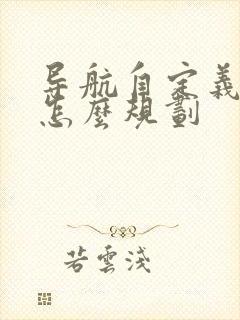 导航自定義
怎麼規劃
若雲淺